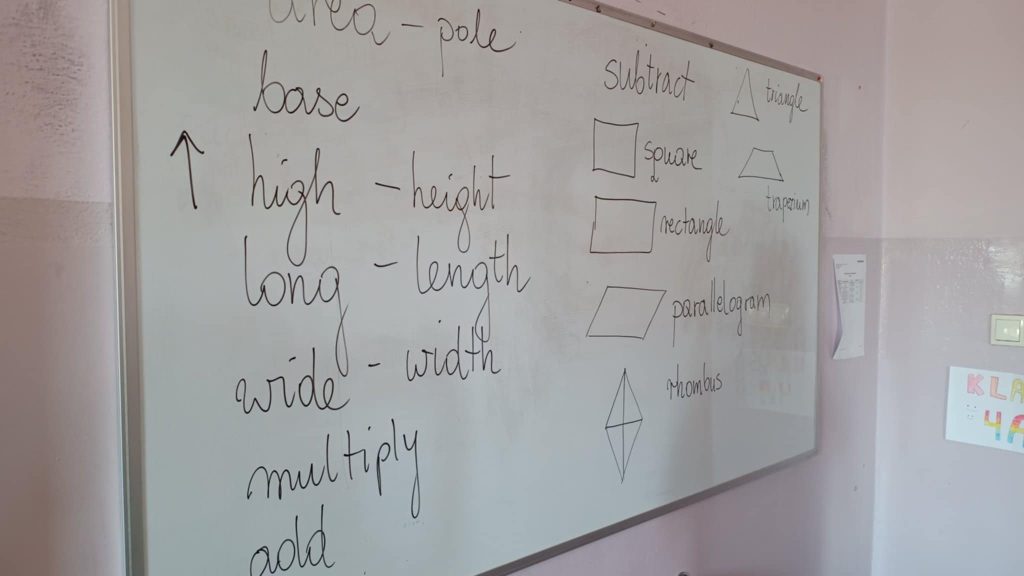 area - pole
base
high - height
long - length
wide - width
multiply
add
subtract
square
rectangle
parallelogram
rhombus
triangle
trapezium
KLA
4A